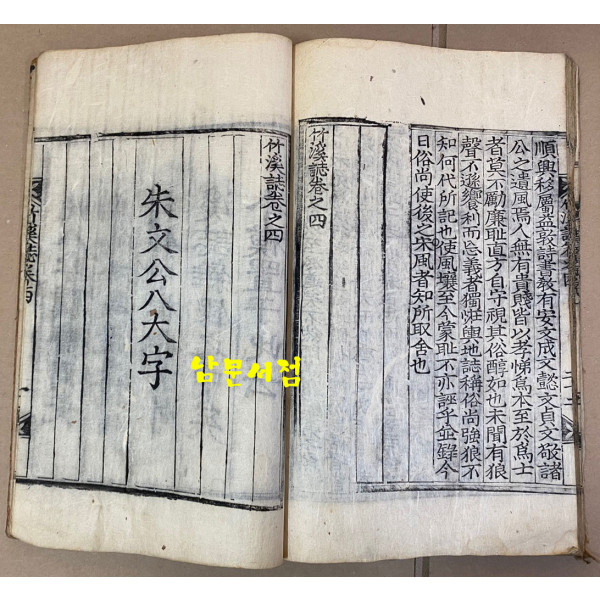 順興移屬益敦詩書教有安文成文懿文貞文敬諸
公之遺風焉人無有貴賤皆以孝悌爲本至於爲士
者莫不勵廉耻直方自守視其俗醇如也未聞有狼
聲不遜嚮利而忘義者獨恠輿地誌稱俗尚強狼不
知何代所記也使風壤至今蒙耻不亦誣乎並錄今
日俗尚使後之采風者知所取舍也
竹溪誌卷之四
竹溪誌卷之四
朱文公八大字
남문서점